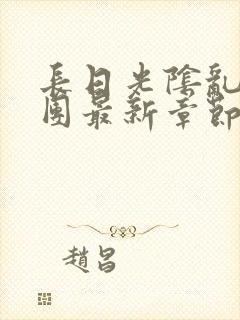 長日光陰亂
園最新章節
趙昌